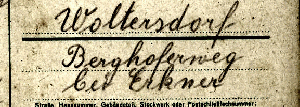 Woltersdorf
Berghoferweg
bei Erkner
Straße, Hausnummer, Gebäudeteil, Stockwerk oder Postschließfachnummer